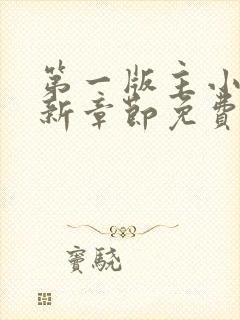 第一版主小
新章節免費
竇驍